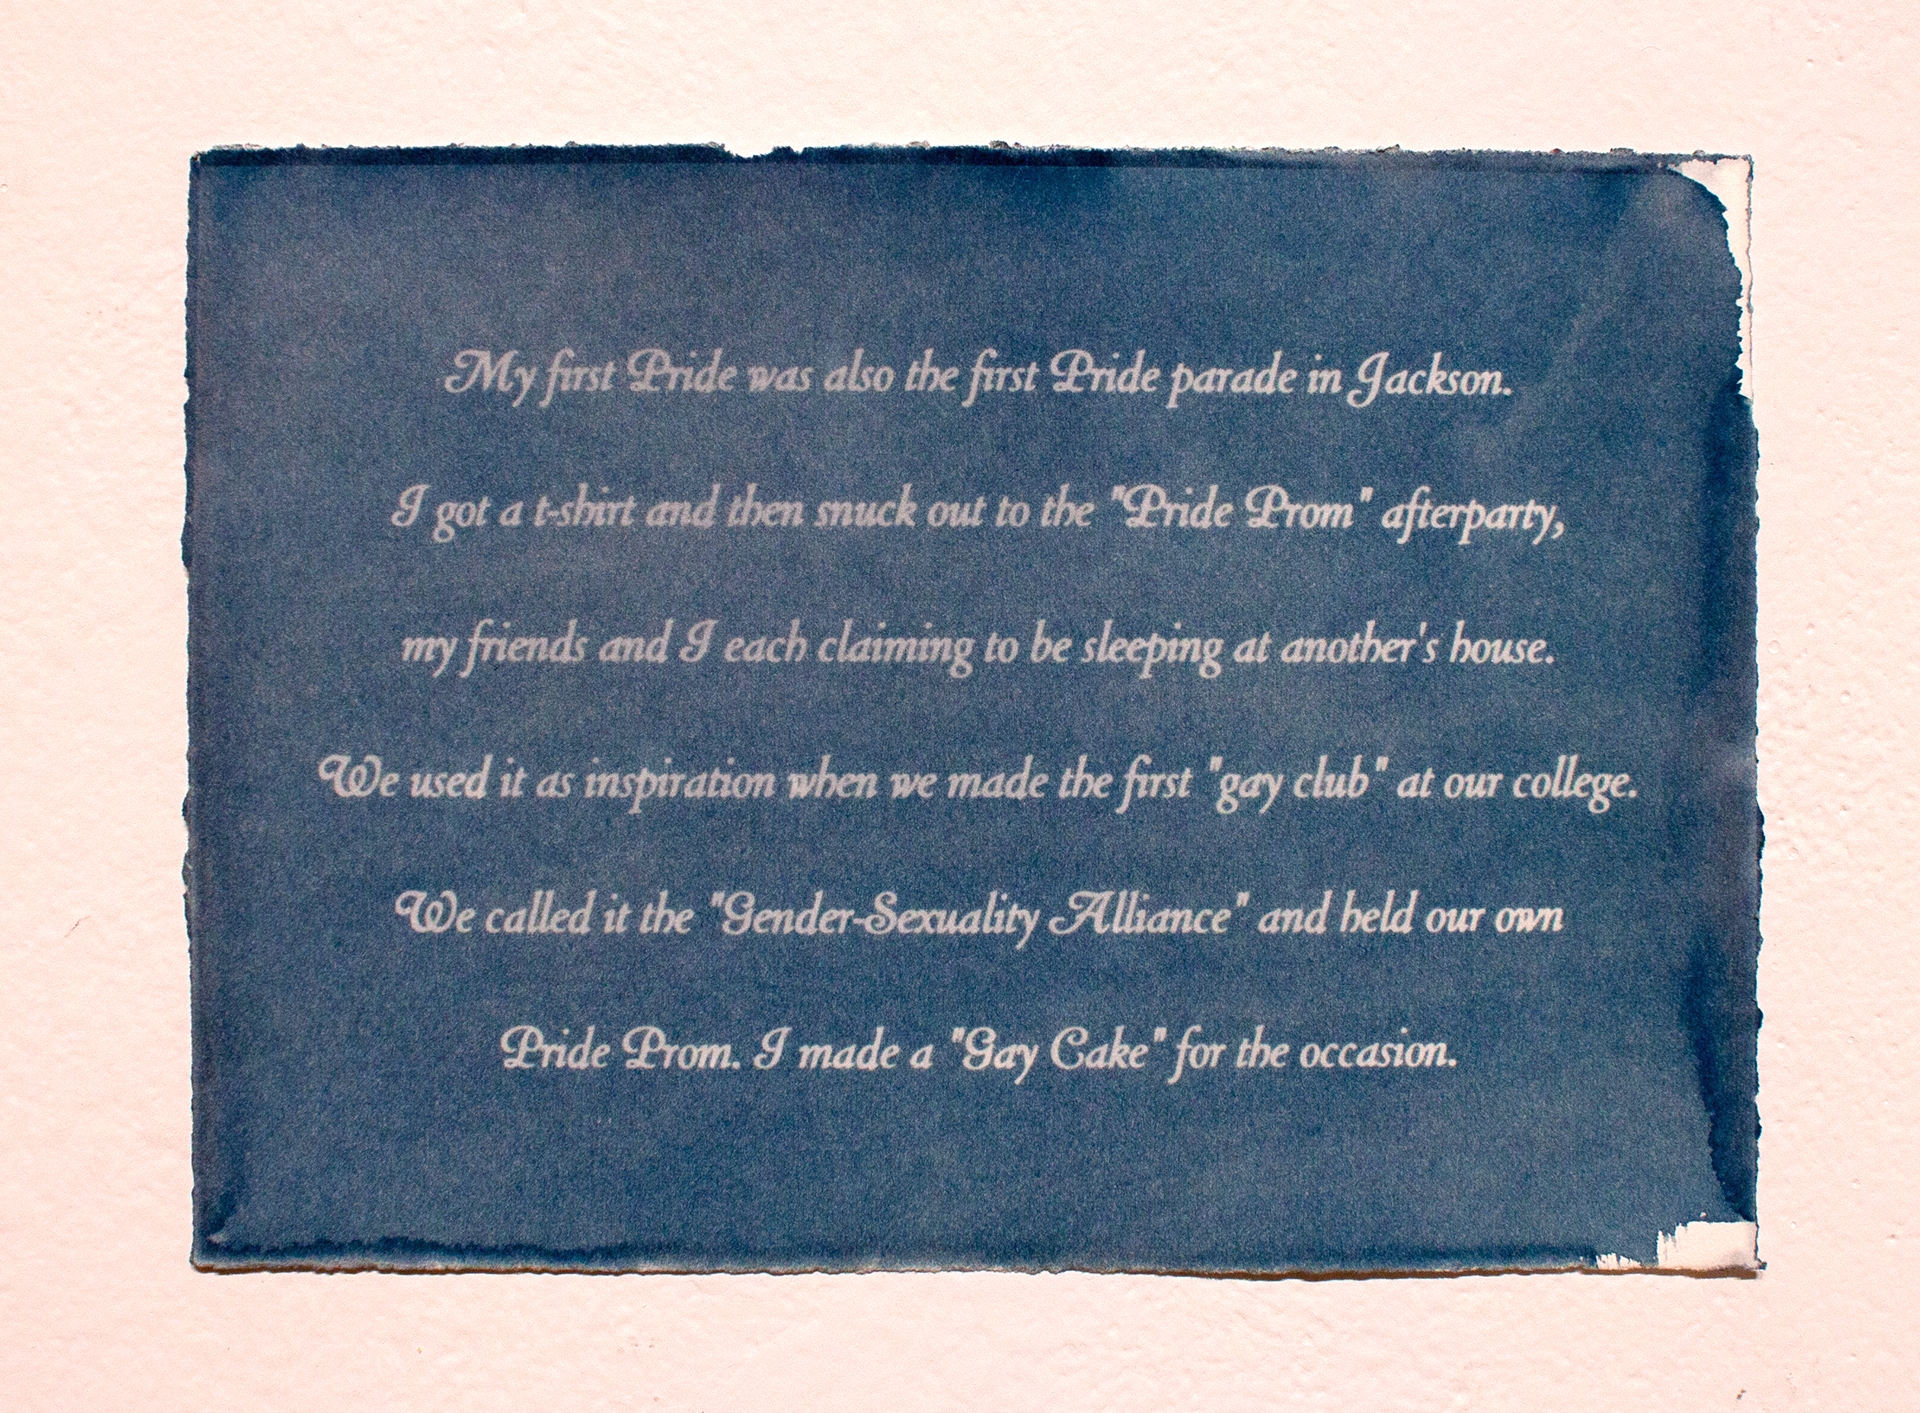 My first Pride was also the first Pride parade in Jackson.
I got a t-shirt and then snuck out to the "Pride Prom" afterparty,
my friends and I each claiming to be sleeping at another's house.
We used it as inspiration when we made the first "gay club" at our college.
We called it the "Gender-Sexuality Alliance" and held our own
Pride Prom. I made a "Gay Cake" for the occasion.